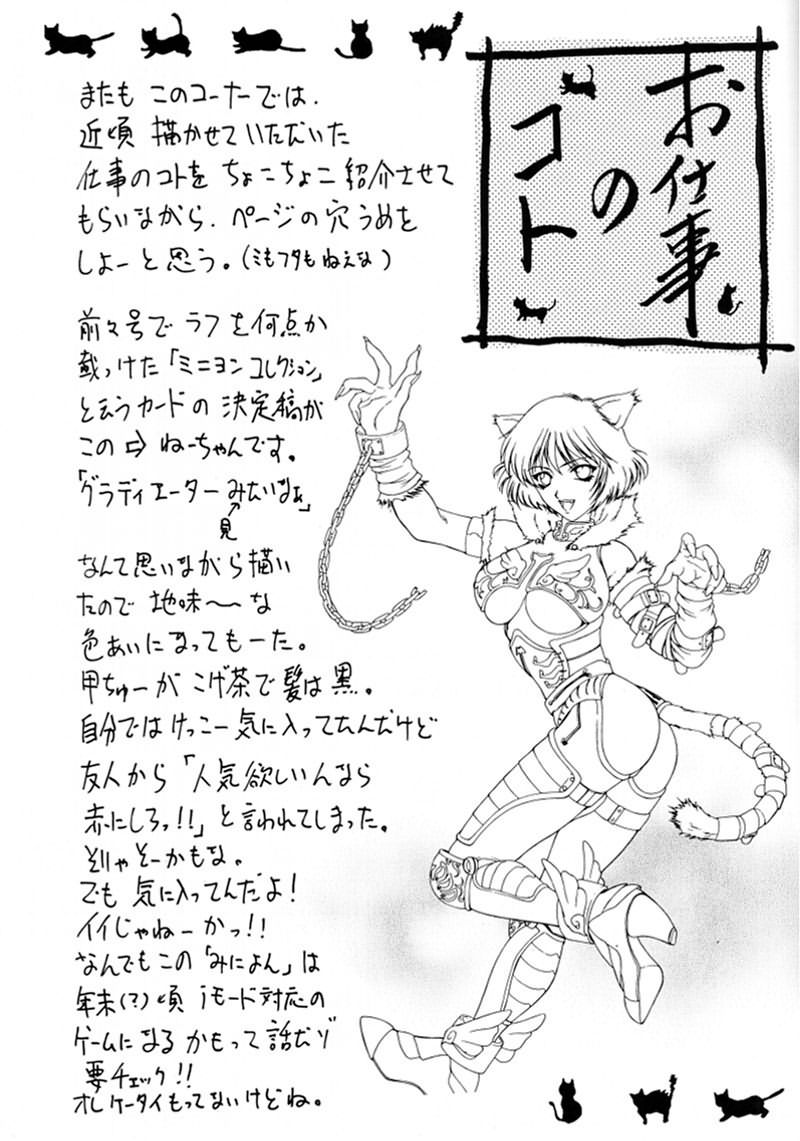 お仕事
の
コト
またも このコーナーでは、
近頃 描かせていただいた
仕事のコトを ちょこちょこ紹介させて
もらいながら、ページの穴うめを
しよーと思う。(ミもフタもねえな)
前々号で ラフを何点か
載っけた「ミニヨンコレクション」
と云うカードの 決定稿が
この⇨ ねーちゃんです。
「グラディエーターみたいなぁ」
見
なんて思いながら描い
たので 地味〜な
色あいになってもーた。
甲ちゅーが こげ茶で髪は黒。
自分ではけっこー気に入ってたんだけど
友人から「人気欲しいんなら
赤にしろッ!!」と言われてしまった。
そりゃそーかもな。
でも 気に入ってんだよ!
イイじゃねーかっ!!
なんでもこの「みによん」は
年末(?)頃 iモード対応の
ゲームになるかもって話だゾ
要チェック!!
オレケータイもってないけどね。